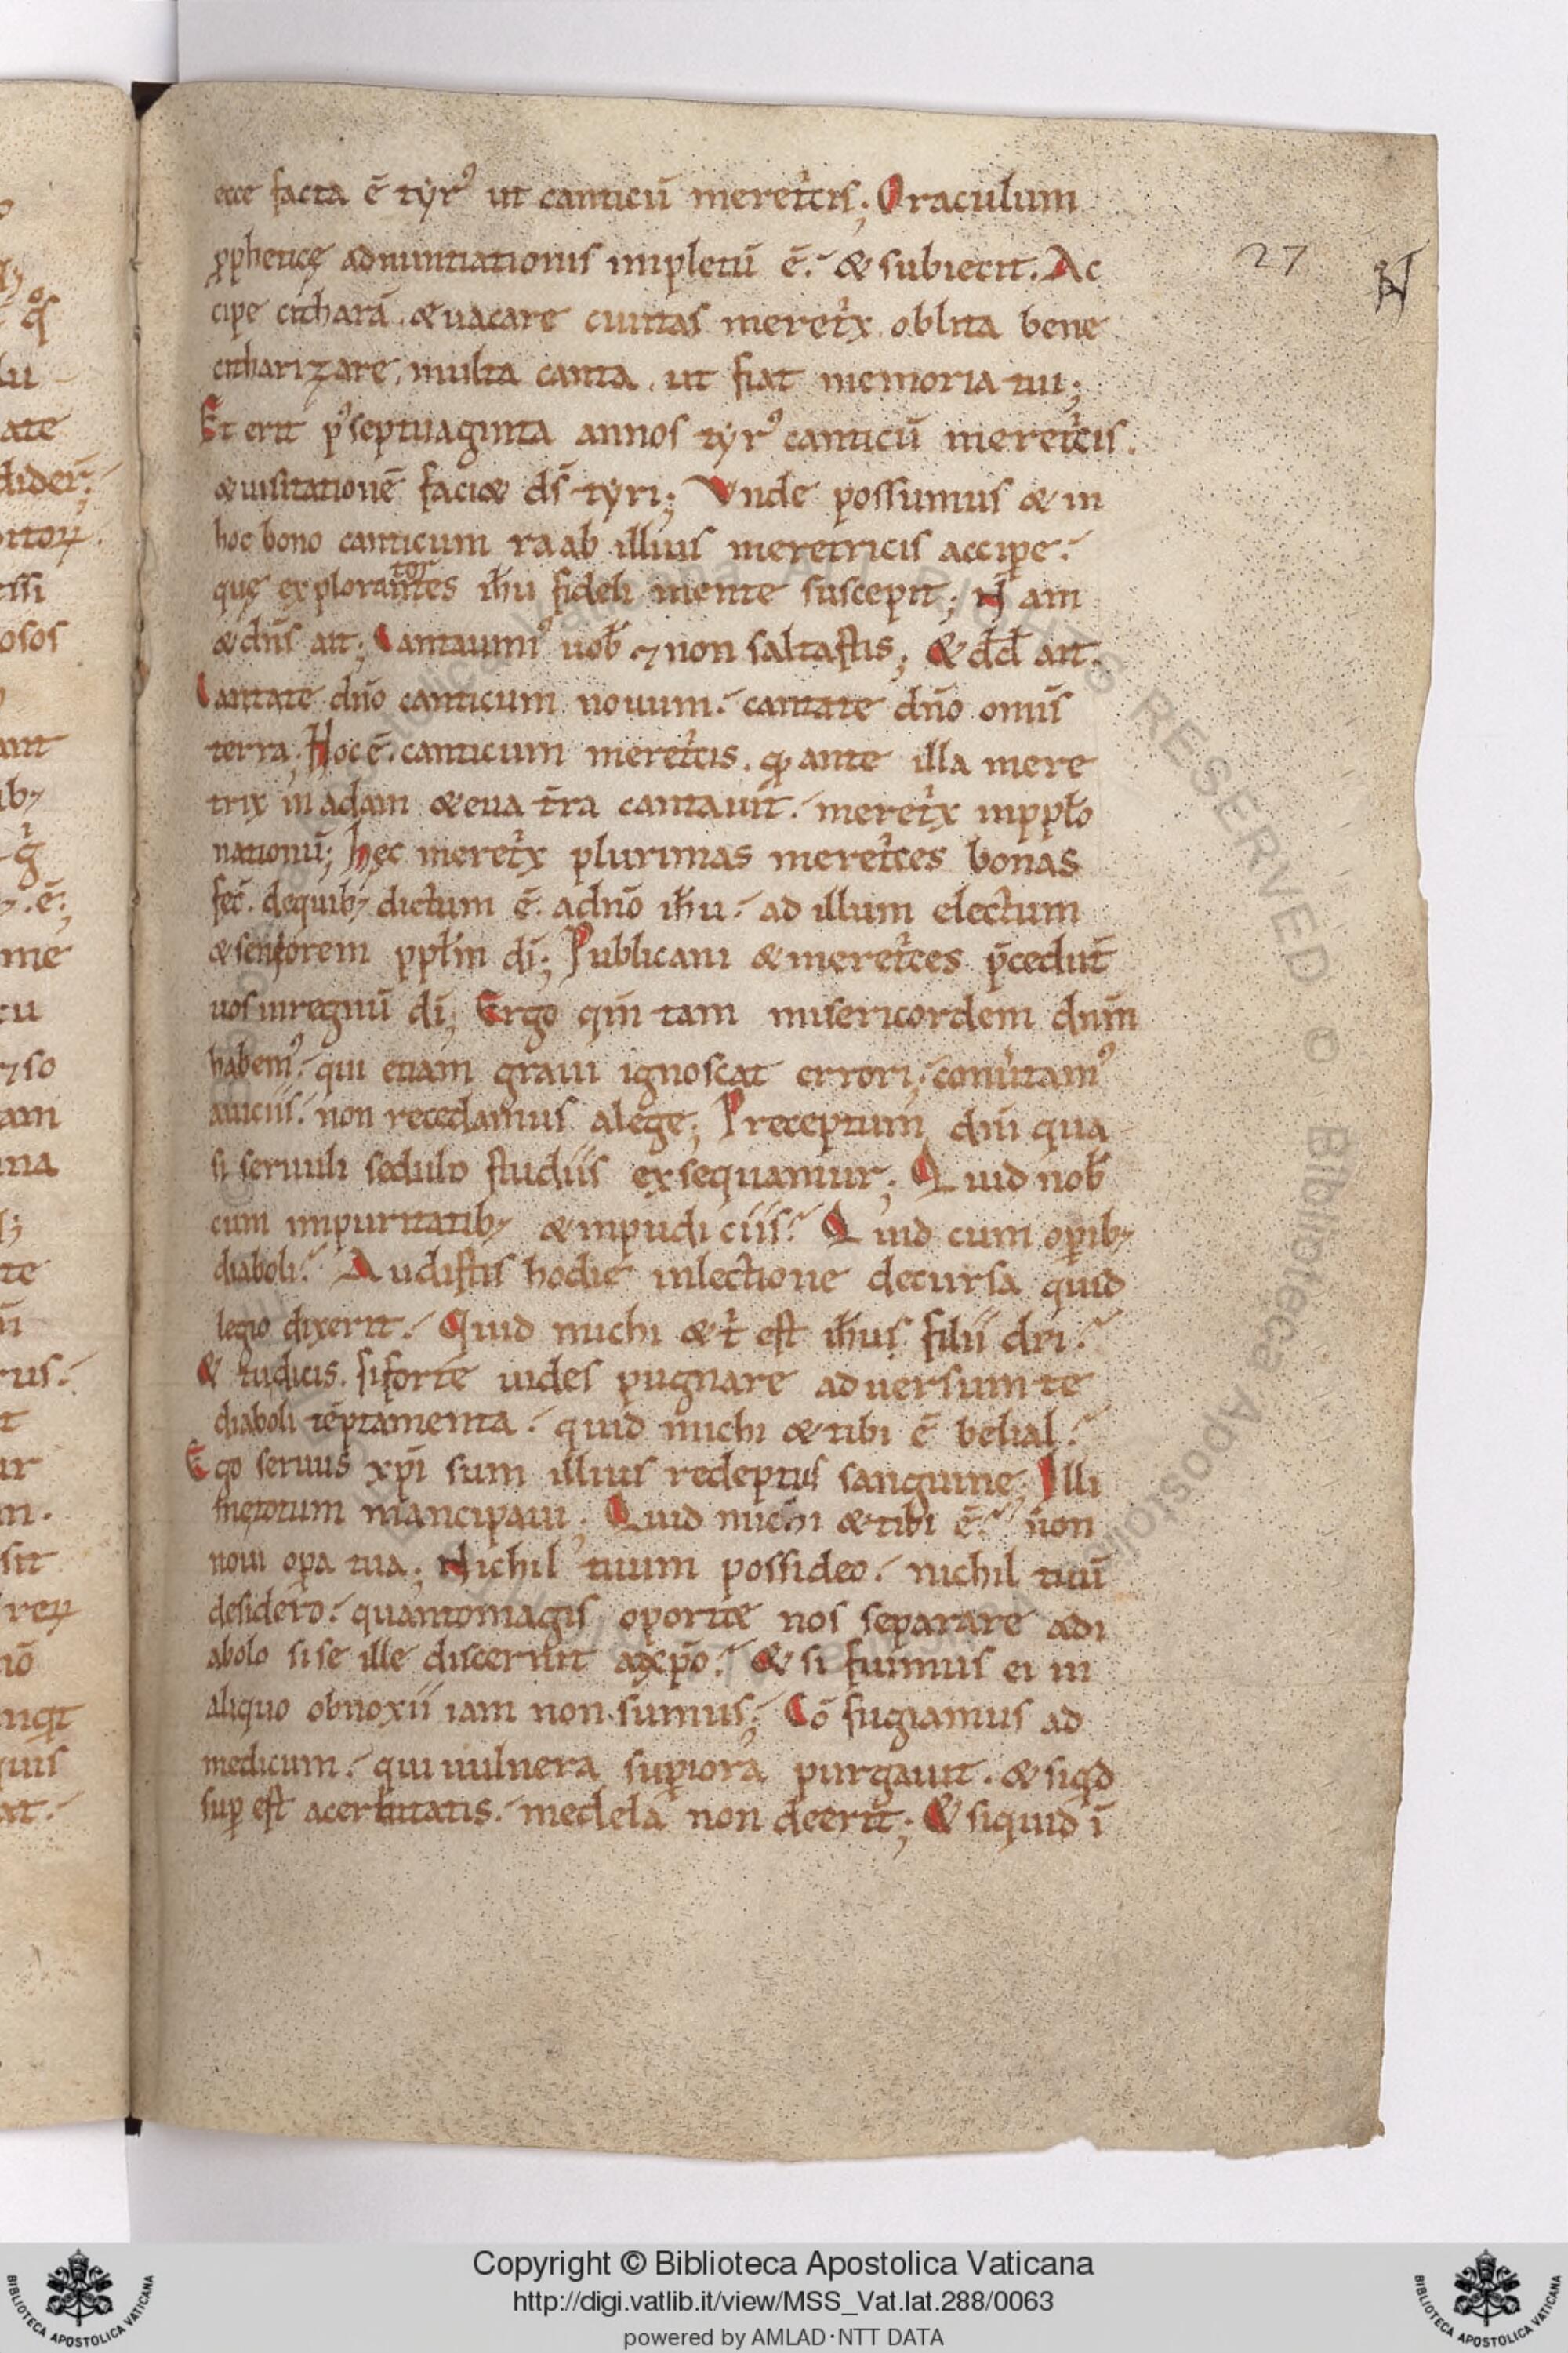 ecce facta ē tyrꝰ ut canticū meretͥcis; Oraculum
ꝓphetice̜ adnuntiationis impletū ē. & subiecit. Ac
cipe citharā. & uacare ciuitas meretͥx oblita bene
citharizare, multa canta. ut fiat memoria tui;
Et erit pꝰ septuaginta annos tyrꝰ canticū meretͥcis.
& uisitationē faci& ds̄ tyri; Vnde possumus & in
hoc bono canticum raab illius meretricis accipe.
que̜ explorantes ih̄u fideli mente suscepit; Nam
tor
& dn̄s ait; Cantauimꝰ uob̄ ⁊ non saltastis; & dd̄ ait.
Cantate dn̄o canticum nouum. cantate dn̄o omīs
terra; Hoc ē. canticum meretͥcis. qͩ ante illa mere
trix in adam & eua t̄ra cantauit. meretͥx in ppl̄o
nationū; he̜c meretͥx plurimas meretͥces bonas
fec̄. de quibꝫ dictum ē. a dn̄o ih̄u. ad illum electum
& seniorem ppl̄m dī; Publicani & meretͥces p̄cedūt
uos in regnū dī; Ergo qm̄ tam misericordem dn̄m
habemꝰ. qui etiam graui ignoscat errori; conu̓tamꝰ
a uiciis. non recedamus a lege; Preceptum dn̄i qua
si seruuli sedulo studiis exsequamur; Quid nob̄
cum impuritatibꝫ & inpudiciis? Quid cum oꝑibꝫ
diaboli? Audistis hodie in lectione decursa quid
legio dixerit. Quid michi & tͥ est ih̄us filii dei?
& tu dicis. si forte uides pugnare aduersum te
diaboli tēptamenta. quid michi & tibi ē belial?
Ego seruus xp̄i sum illius redeptus sanguine; Illi
me totum mancipaui; Quid michi & tibi ē? non
noui oꝑa tua; Nichil tuum possideo. nichil tuū
desidero. quanto magis oport& nos separare a di
abolo si se ille discernit a xp̄o. & si fuimus ei in
aliquo obnoxii iam non sumus; Cō fugiamus ad
medicum. qui uulnera suꝑiora purgauit. & siqͩ
suꝑ est acerbitatis. medela non deerit; & siquid ī
27
Copyright © Biblioteca Apostolica Vaticana
http://digi.vatlib.it/view/MSS_Vat.lat.288/0063
powered by AMLAD·NTT DATA
BIBLIOTECA APOSTOLICA VATICANA
BIBLIOTECA APOSTOLICA VATICANA